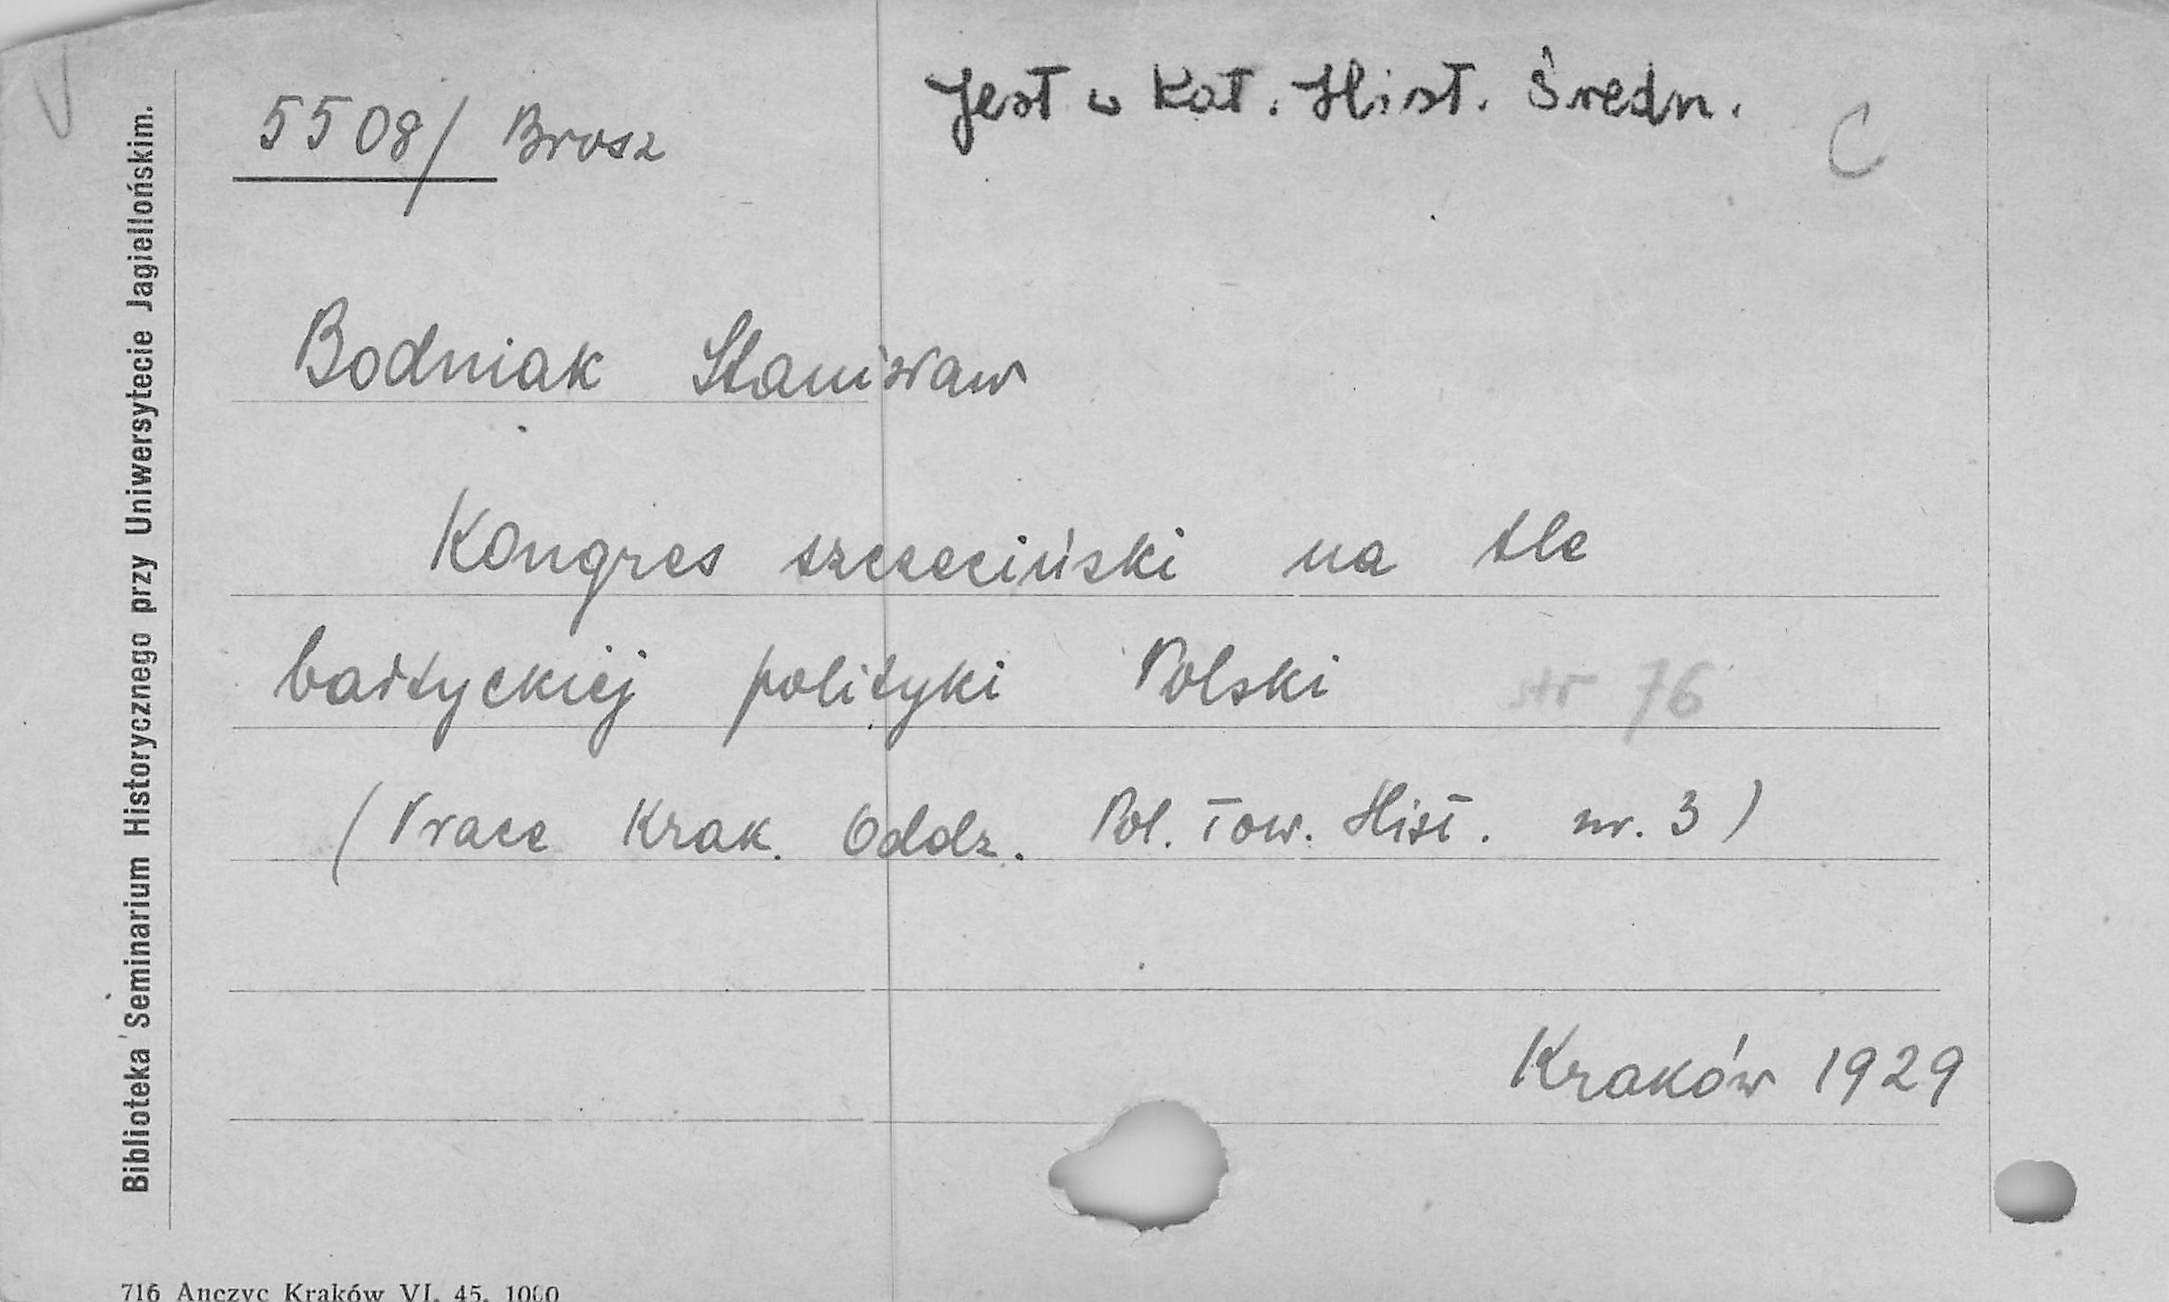 V
5508/ Brosz
Jest w Kat. Hist. Średn.
C
Bodniak Stanisław
Kongres szczeciński na tle
bałtyckiej polityki Polski str 76
(Prace Krak. Oddz. Pol. Tow. Hist. nr. 3)
Kraków 1929
Biblioteka Seminarium Historycznego przy Uniwersytecie Jagiellońskim.
716 Anczyc Kraków VI. 45. 1000